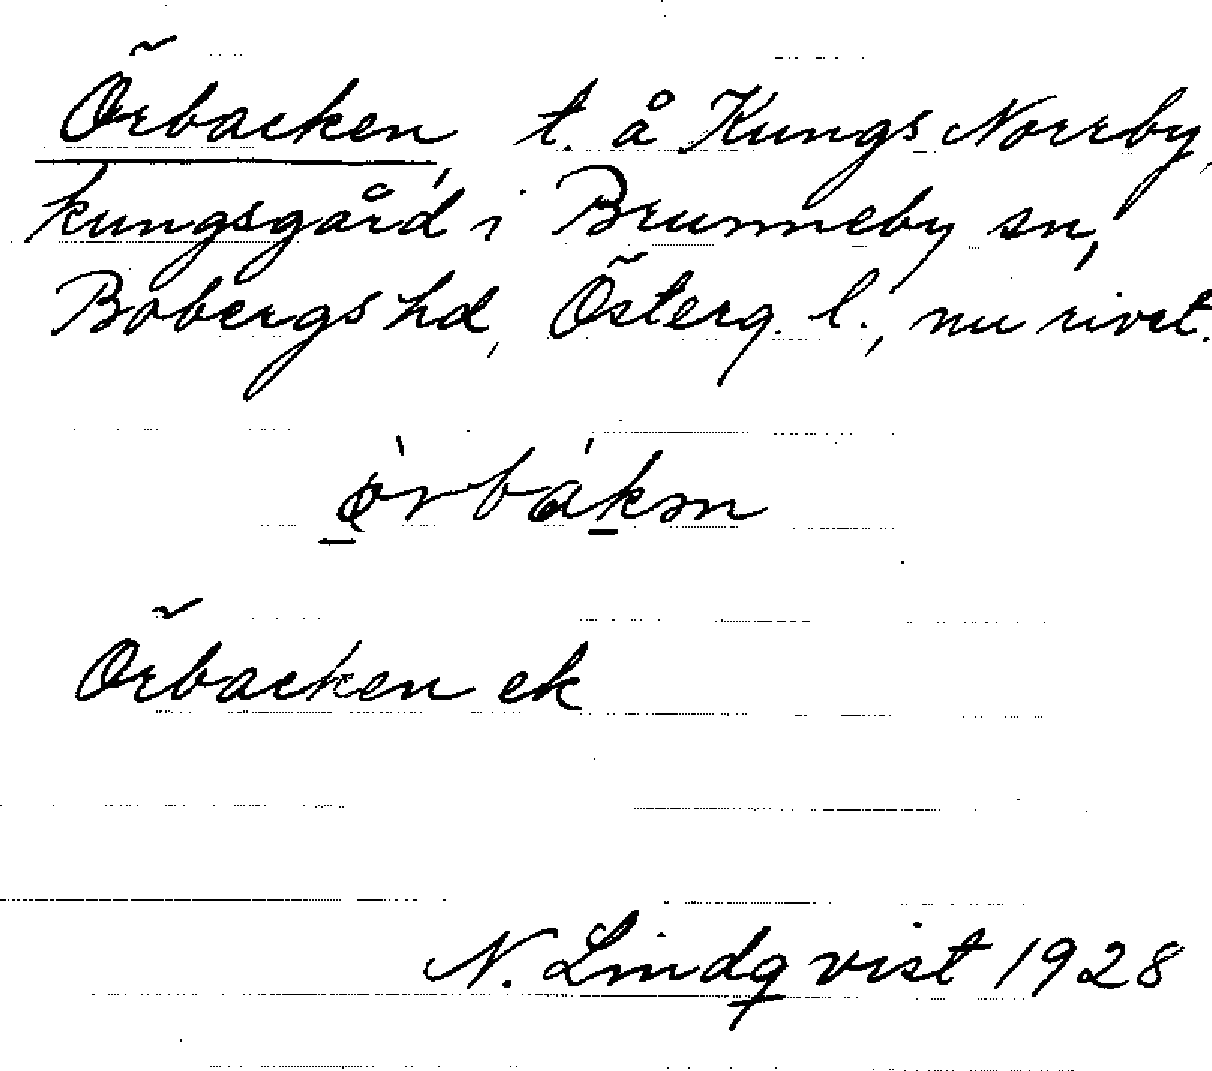 Örbacken, t. å Kungs Norrby,
kungsgård i Brunneby sn,
Bobergs hd, Österg. l., nu rivet.
Örbacken ek
N. Lindqvist 1928